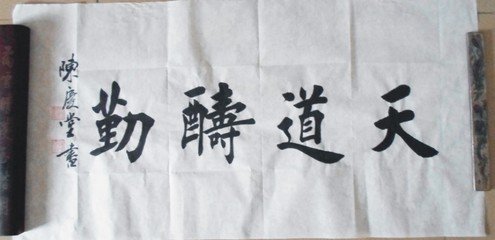 天道酬勤
陳慶堂書